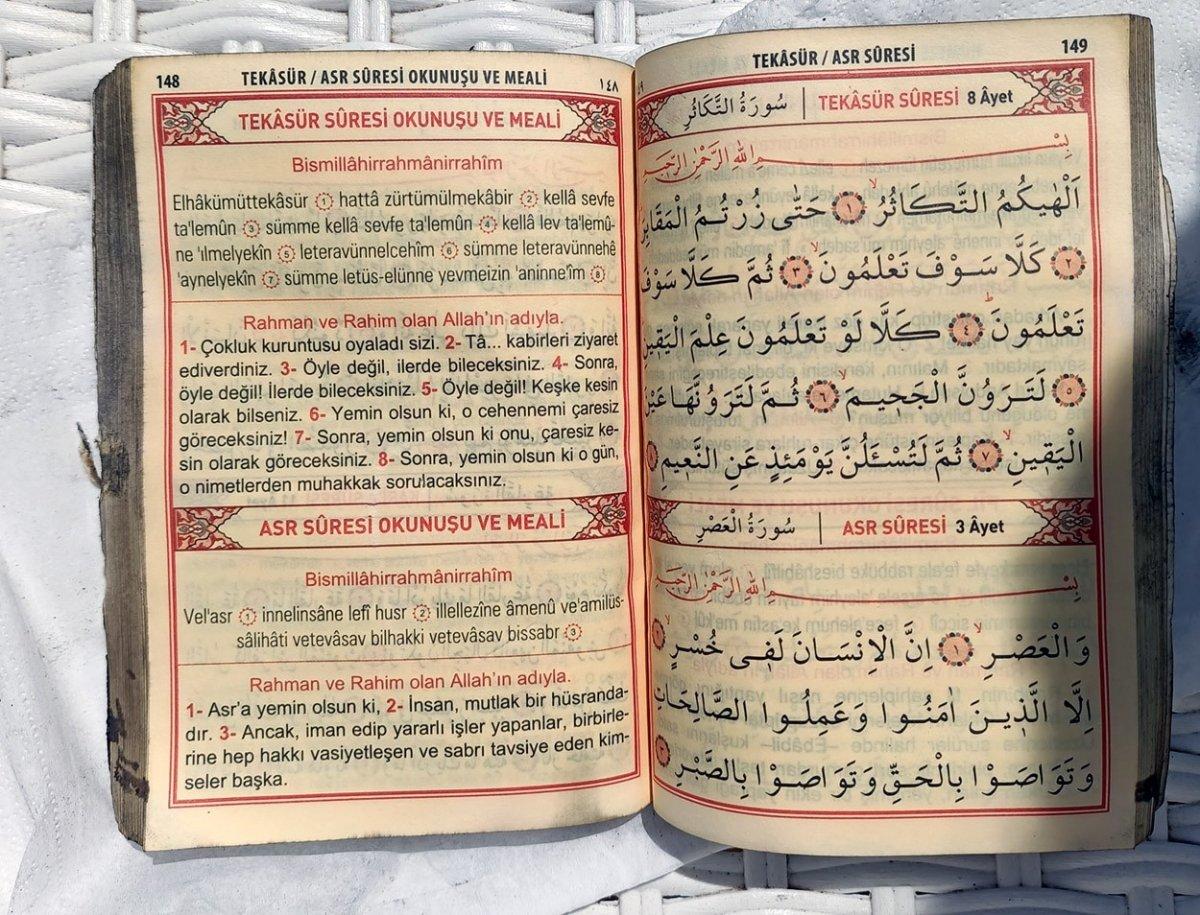 148 TEKÂSÜR / ASR SÛRESİ OKUNUŞU VE MEALİ ١٤٨
TEKÂSÜR SÛRESİ OKUNUŞU VE MEALİ
Bismillâhirrahmânirrahîm
Elhâkümüttekâsür ① hattâ zürtümülmekâbir ② kellâ sevfe
ta'lemûn ③ sümme kellâ sevfe ta'lemûn ④ kellâ lev ta'lemû-
ne 'ilmelyekîn ⑤ leteravünnelcehîm ⑥ sümme leteravünnehê
'aynelyekîn ⑦ sümme letüs-elünne yevmeizin 'aninne'îm ⑧
Rahman ve Rahim olan Allah'ın adıyla.
1- Çokluk kuruntusu oyaladı sizi. 2- Tâ... kabirleri ziyaret
ediverdiniz. 3- Öyle değil, ilerde bileceksiniz. 4- Sonra,
öyle değil! İlerde bileceksiniz. 5- Öyle değil! Keşke kesin
olarak bilseniz. 6- Yemin olsun ki, o cehennemi çaresiz
göreceksiniz! 7- Sonra, yemin olsun ki onu, çaresiz ke-
sin olarak göreceksiniz. 8- Sonra, yemin olsun ki o gün,
o nimetlerden muhakkak sorulacaksınız.
ASR SÛRESİ OKUNUŞU VE MEALİ
Bismillâhirrahmânirrahîm
Vel'asr ① innelinsâne lefî husr ② illellezîne âmenû ve'amilüs-
sâlihâti vetevâsav bilhakki vetevâsav bissabr ③
Rahman ve Rahim olan Allah'ın adıyla.
1- Asr'a yemin olsun ki, 2- İnsan, mutlak bir hüsranda-
dır. 3- Ancak, iman edip yararlı işler yapanlar, birbirle-
rine hep hakkı vasiyetleşen ve sabrı tavsiye eden kim-
seler başka.
TEKÂSÜR / ASR SÛRESİ 149
سُورَةُ التَّكَاثُرِ TEKÂSÜR SÛRESİ 8 Âyet
بِسْمِ اللهِ الرَّحْمٰنِ الرَّحِيمِ
اَلْهٰيكُمُ التَّكَاثُرُ ١ حَتّٰى زُرْتُمُ الْمَقَابِرَ
٢ كَلَّا سَوْفَ تَعْلَمُونَ ٣ ثُمَّ كَلَّا سَوْفَ
تَعْلَمُونَ ٤ كَلَّا لَوْ تَعْلَمُونَ عِلْمَ الْيَقِينِ
٥ لَتَرَوُنَّ الْجَحِيمَ ٦ ثُمَّ لَتَرَوُنَّهَا عَيْنَ
الْيَقِينِ ٧ ثُمَّ لَتُسْـَٔلُنَّ يَوْمَئِذٍ عَنِ النَّعِيمِ
سُورَةُ الْعَصْرِ ASR SÛRESİ 3 Âyet
بِسْمِ اللهِ الرَّحْمٰنِ الرَّحِيمِ
وَالْعَصْرِ ١ اِنَّ الْاِنْسَانَ لَفِى خُسْرٍ ٢
اِلَّا الَّذِينَ اٰمَنُوا وَعَمِلُوا الصَّالِحَاتِ
وَتَوَاصَوْا بِالْحَقِّ وَتَوَاصَوْا بِالصَّبْرِ ٣